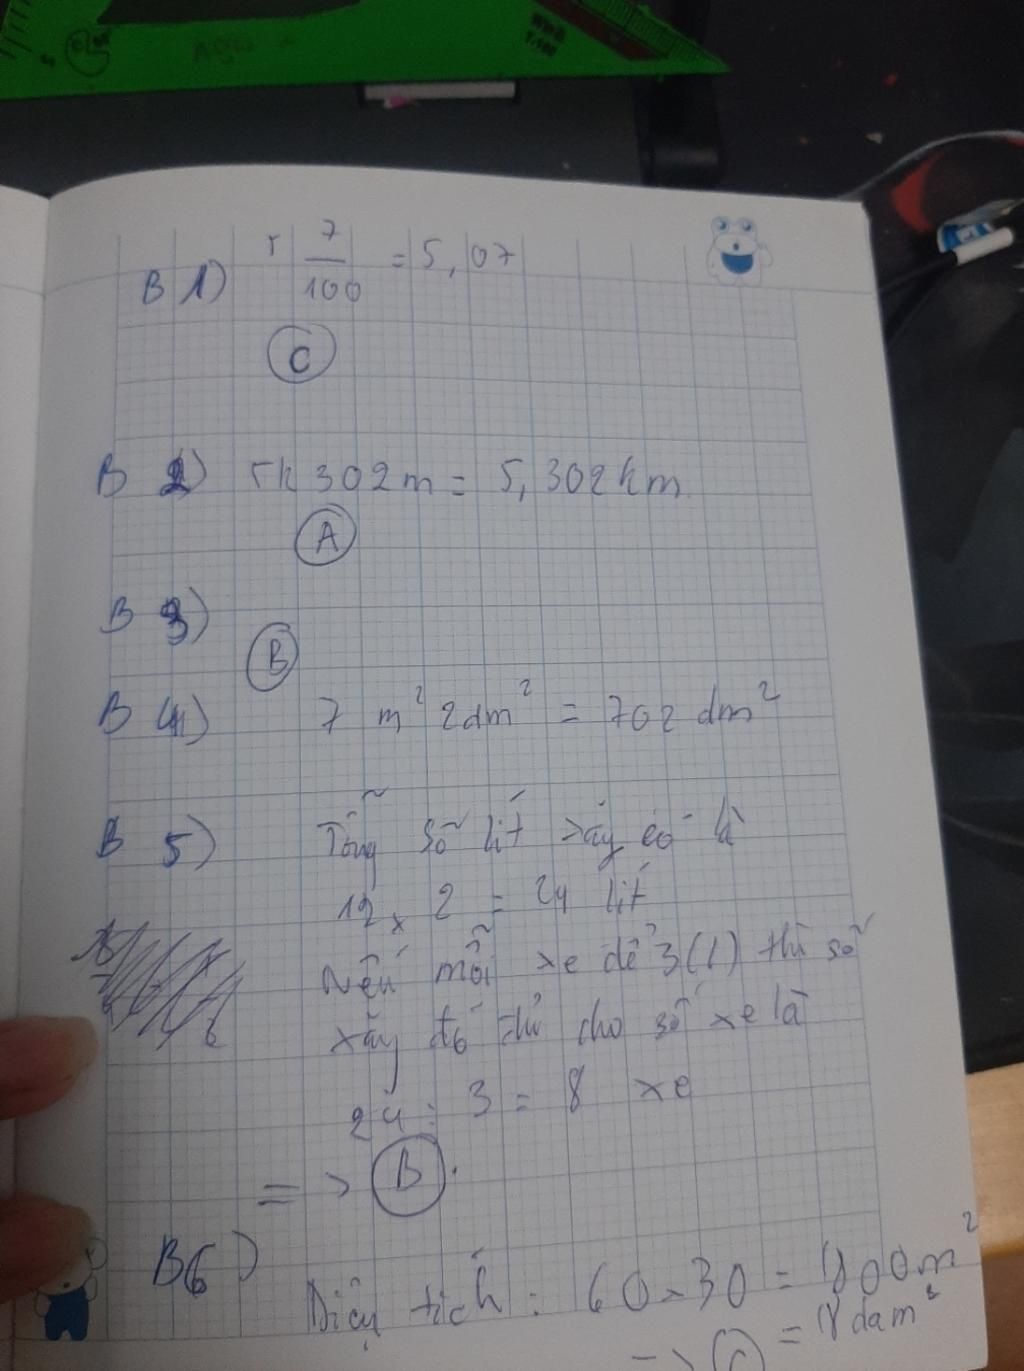 B 1) 5 7/100 = 5,07
C
B 2) 5k 302m = 5,302km
A
B 3)
B
B 4) 7 m² 2dm² = 702 dm²
B 5) Tổng số lít xăng có là
12 x 2 = 24 lít
Nếu mỗi xe để 3(l) thì số
xăng đó đủ cho số xe là
24 : 3 = 8 xe
=> B.
B6) Diện tích : 60 x 30 = 1800m²
= 18 dam²
=> C